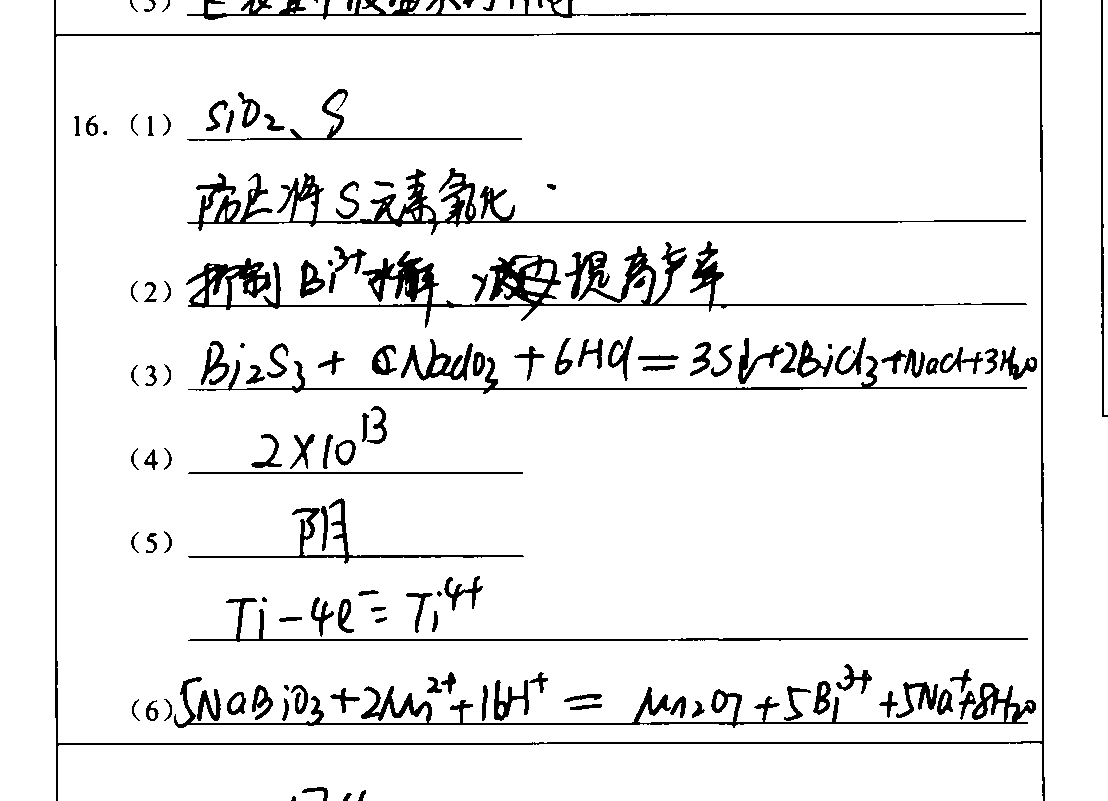 16.（1） SiO₂、S
防止将S元素氧化.
（2） 抑制Bi³⁺水解、提高产率
（3） Bi₂S₃ + NaClO₃ + 6HCl = 3S↓+2BiCl₃+NaCl+3H₂O
（4） 2×10¹³
（5） 阴
Ti-4e⁻=Ti⁴⁺
（6）5NaBiO₃+2Mn²⁺+16H⁺ = Mn₂O₇+5Bi³⁺+5Na⁺+8H₂O